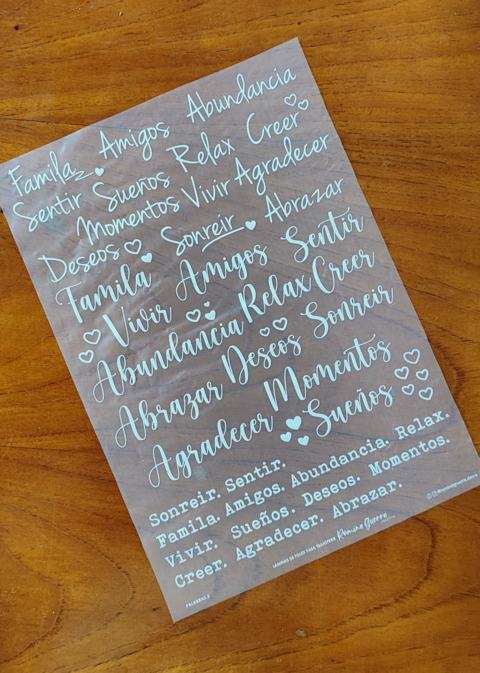 Famila Amigos Abundancia
Sentir Sueños Relax Creer
Momentos Vivir Agradecer
Deseos Sonreir Abrazar
Famila Amigos Sentir
Vivir Relax Creer
Abundancia Deseos Sonreir
Abrazar Momentos
Agradecer Sueños
Sonreir. Sentir.
Famila. Amigos. Abundancia. Relax.
Vivir. Sueños. Deseos. Momentos.
Creer. Agradecer. Abrazar.
PALABRAS 2
LÁMINAS DE FOILES PARA TRANSFERIR Romina Guerra